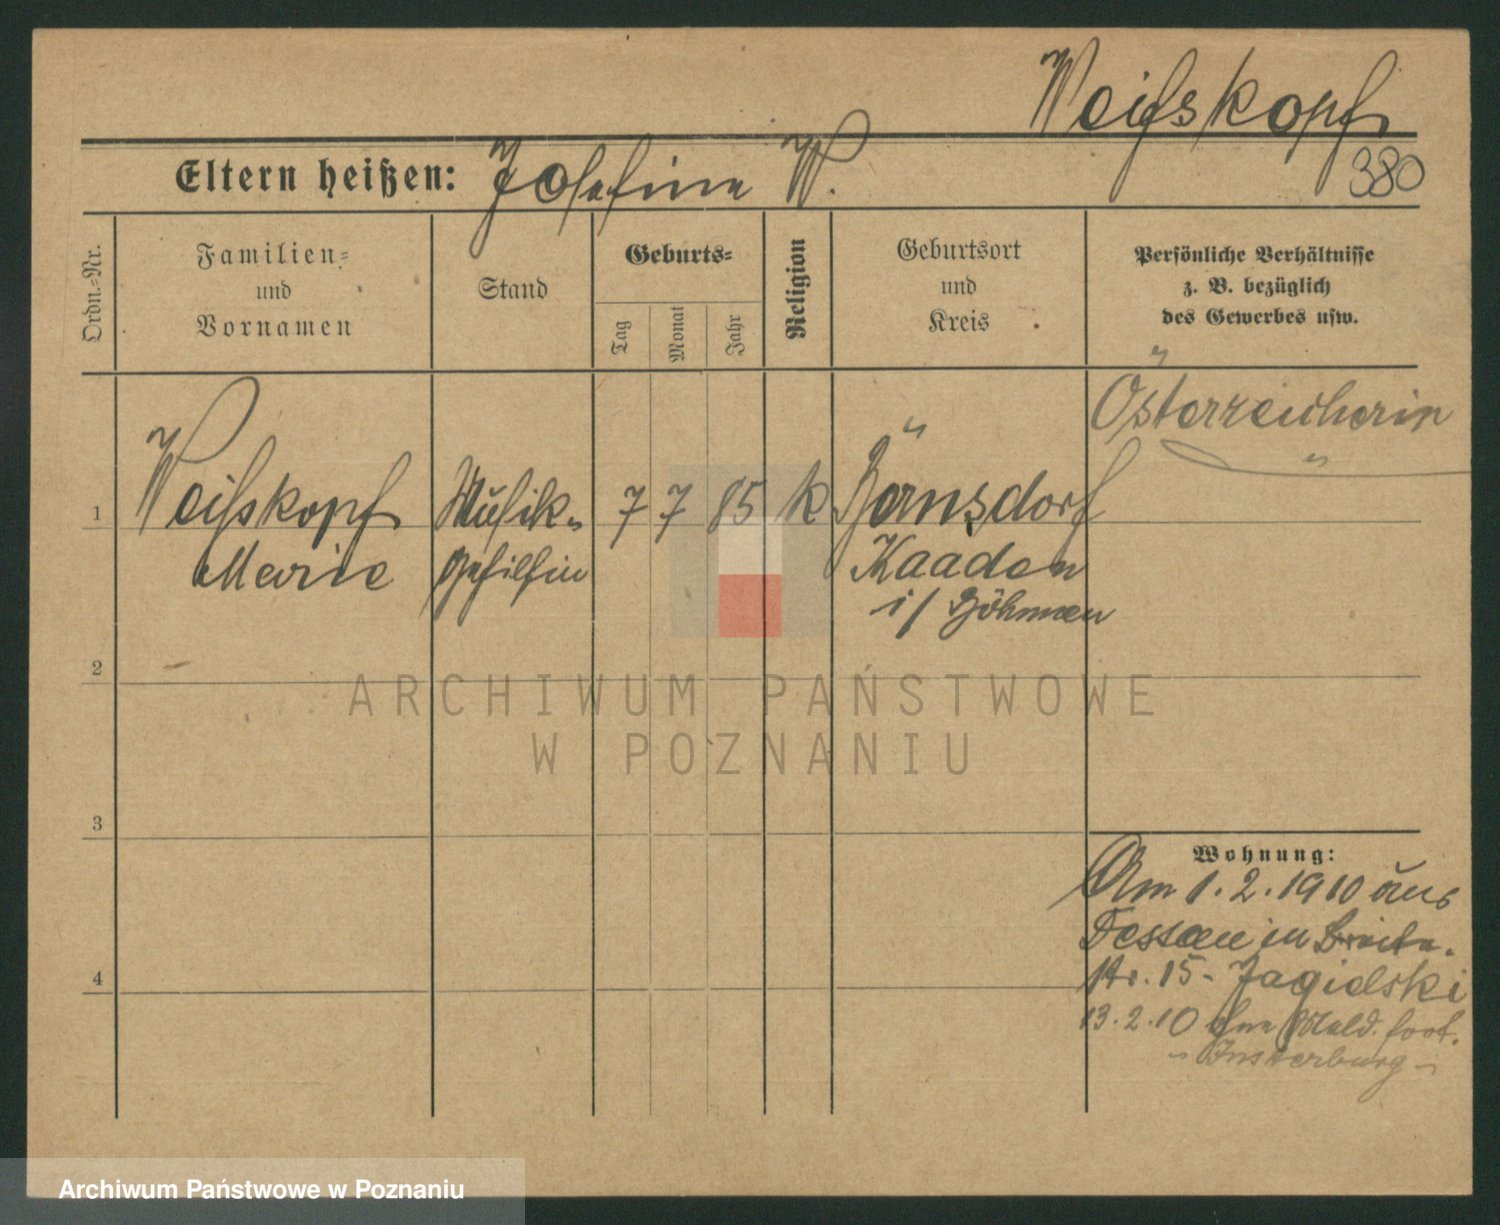 Weißkopf
380
Eltern heißen: Josefine W.
Ordn.=Nr.
Familien= und Vornamen
Stand
Geburts=
Tag
Monat
Jahr
Religion
Geburtsort und Kreis
Persönliche Verhältnisse
z. B. bezüglich
des Gewerbes usw.
Österreicherin
1
Weißkopf
Marie
Musik-
gehilfin
7 7 85 k
Kaaden
i/ Böhmen
2
3
4
Wohnung:
Am 1.2.1910 aus
Dessau in Breite-
str. 15 - Jagielski
13.2.10 ohne Meld. fort.
- Insterburg -
ARCHIWUM PAŃSTWOWE
W POZNANIU
Archiwum Państwowe w Poznaniu